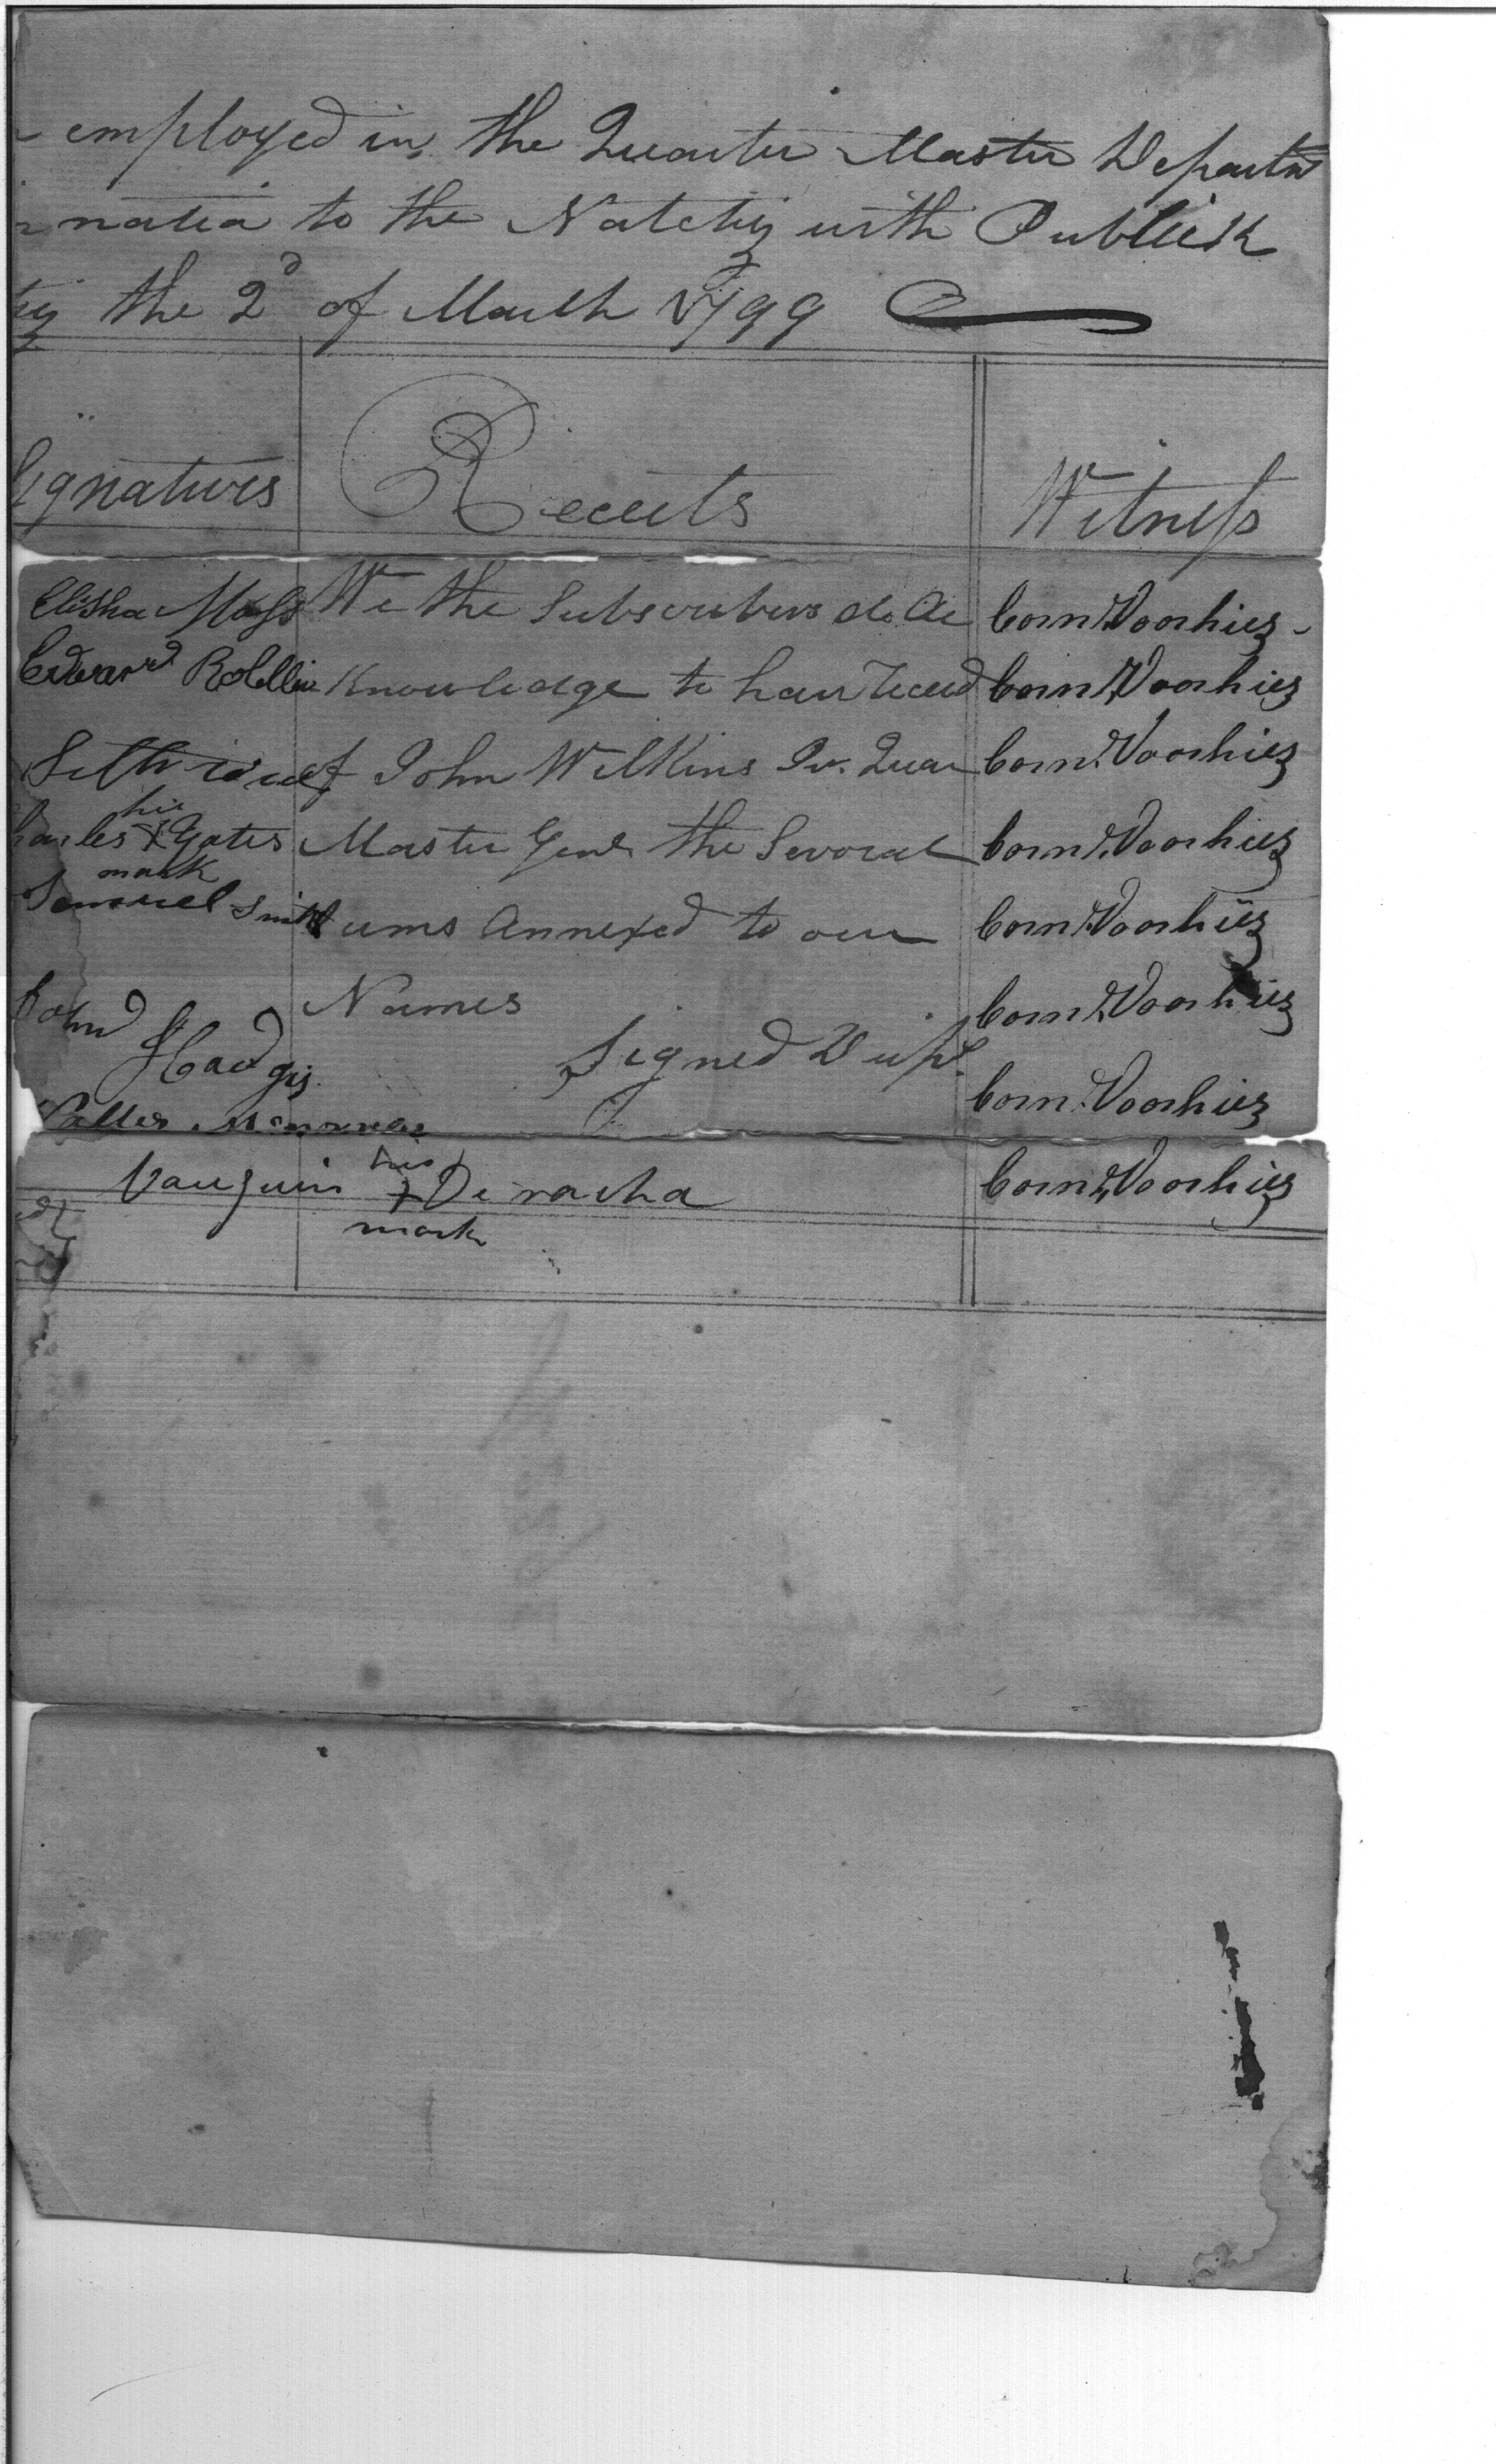 employed in the Quarter Master Departmt
natia to the Natchz with Publick
the 2d of March 1799
Signatures Receits Witness
Elisha Moss We the Subscribers do Ac Corns. Voorhiez
Edward Knowledge to have Reced Corns. Voorhiez
Seth of John Wilkins Jur. Quar Corns. Voorhiez
his
harles X Gates Master Genl the Several Corns. Voorhiez
mark
Samuel Smith Sums Annexed to our Corns. Voorhiez
John Names Corns. Voorhiez
Hadgis Signed Dupl. Corns. Voorhiez
his
Vauguin X De racha Corns. Voorhiez
mark